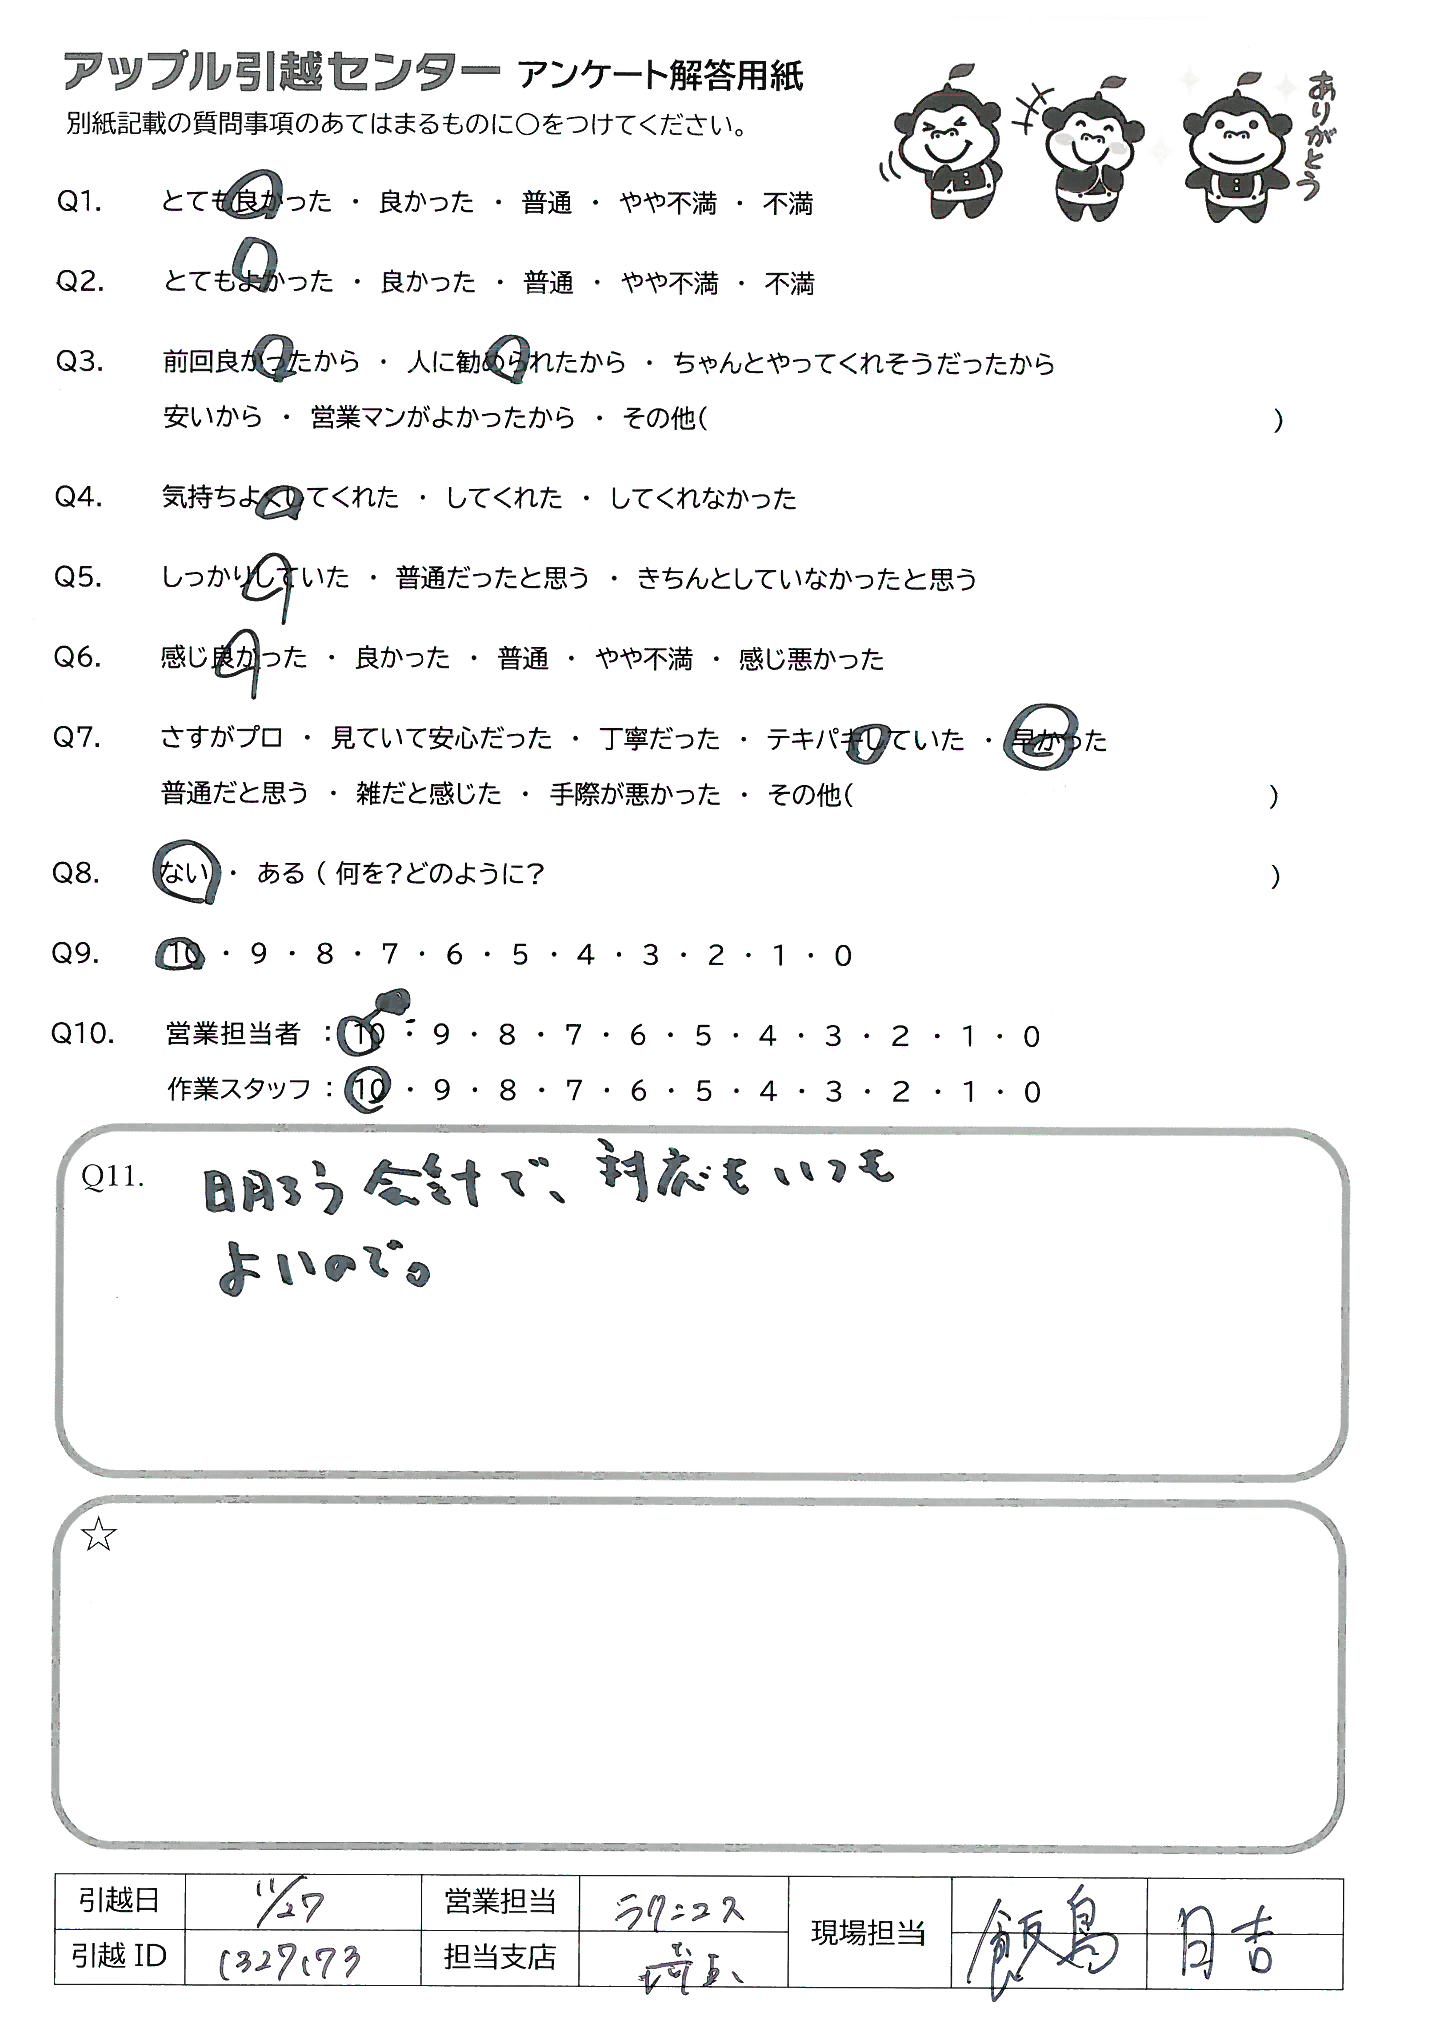 アップル引越センター アンケート解答用紙
別紙記載の質問事項のあてはまるものに〇をつけてください。
ありがとう
Q1. とても良かった ・ 良かった ・ 普通 ・ やや不満 ・ 不満
Q2. とてもよかった ・ 良かった ・ 普通 ・ やや不満 ・ 不満
Q3. 前回良かったから ・ 人に勧められたから ・ ちゃんとやってくれそうだったから
安いから ・ 営業マンがよかったから ・ その他( )
Q4. 気持ちよくしてくれた ・ してくれた ・ してくれなかった
Q5. しっかりしていた ・ 普通だったと思う ・ きちんとしていなかったと思う
Q6. 感じ良かった ・ 良かった ・ 普通 ・ やや不満 ・ 感じ悪かった
Q7. さすがプロ ・ 見ていて安心だった ・ 丁寧だった ・ テキパキしていた ・ 早かった
普通だと思う ・ 雑だと感じた ・ 手際が悪かった ・ その他( )
Q8. ない ・ ある ( 何を?どのように? )
Q9. 10 ・ 9 ・ 8 ・ 7 ・ 6 ・ 5 ・ 4 ・ 3 ・ 2 ・ 1 ・ 0
Q10. 営業担当者 : 10 ・ 9 ・ 8 ・ 7 ・ 6 ・ 5 ・ 4 ・ 3 ・ 2 ・ 1 ・ 0
作業スタッフ : 10 ・ 9 ・ 8 ・ 7 ・ 6 ・ 5 ・ 4 ・ 3 ・ 2 ・ 1 ・ 0
Q11. 明ろう会計で、対応もいつも
よいので。
☆
引越日 11/27 営業担当 ラクニコス 現場担当 飯島 日吉
引越 ID 1327173 担当支店 埼玉